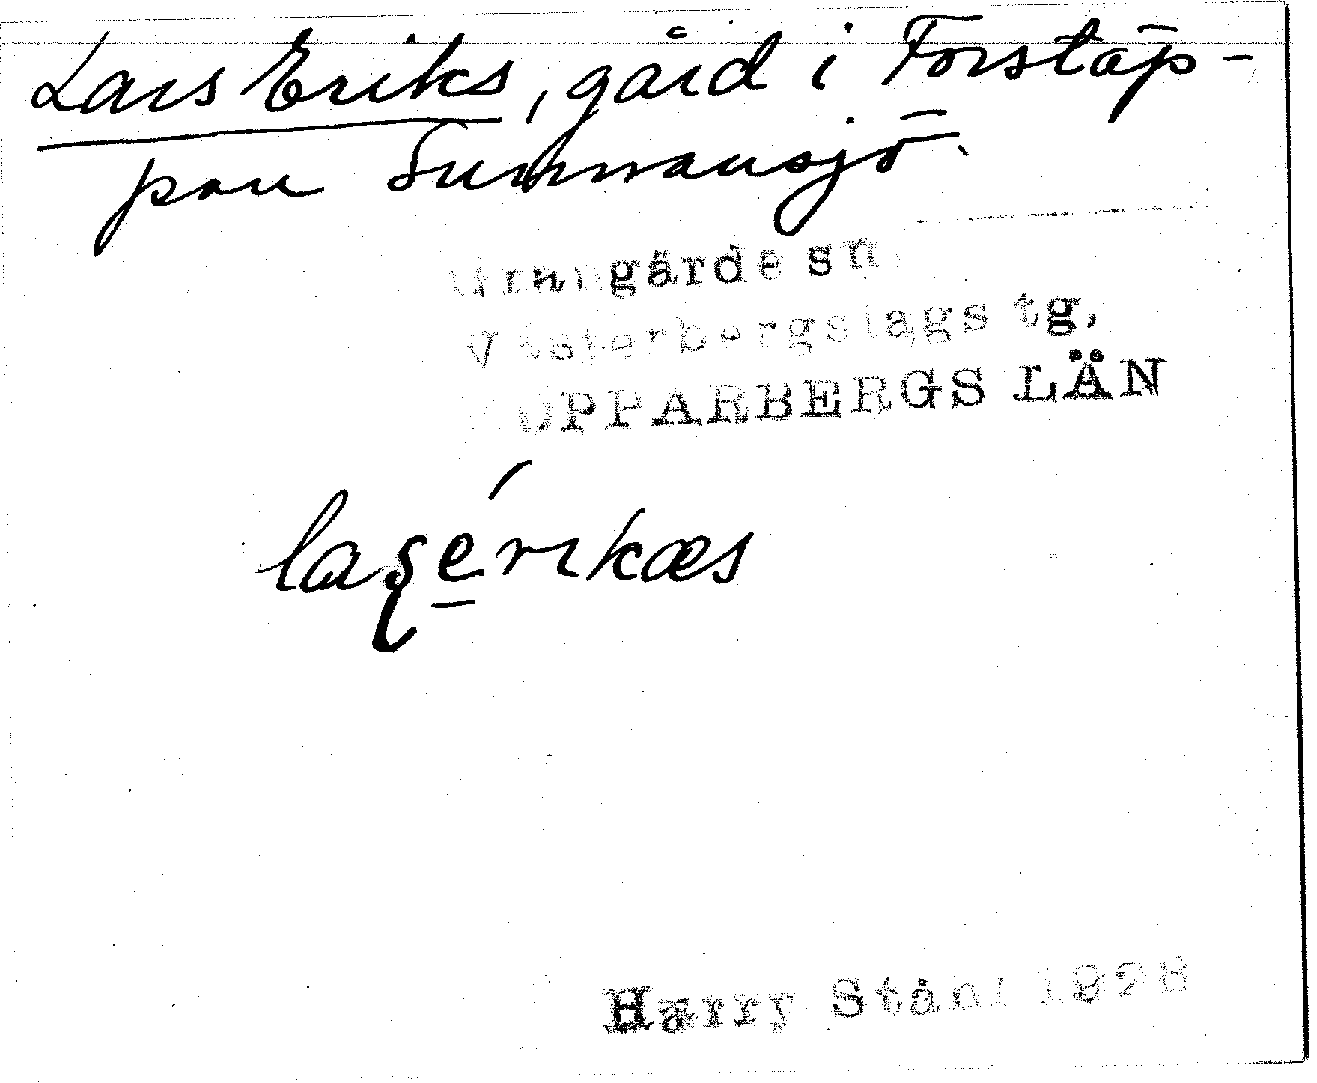 Lars Eriks, gård i Forstäp-
pan Sunnansjö.
Grangärde sn
Västerbergslags tg,
KOPPARBERGS LÄN
Harry Ståhl 1928